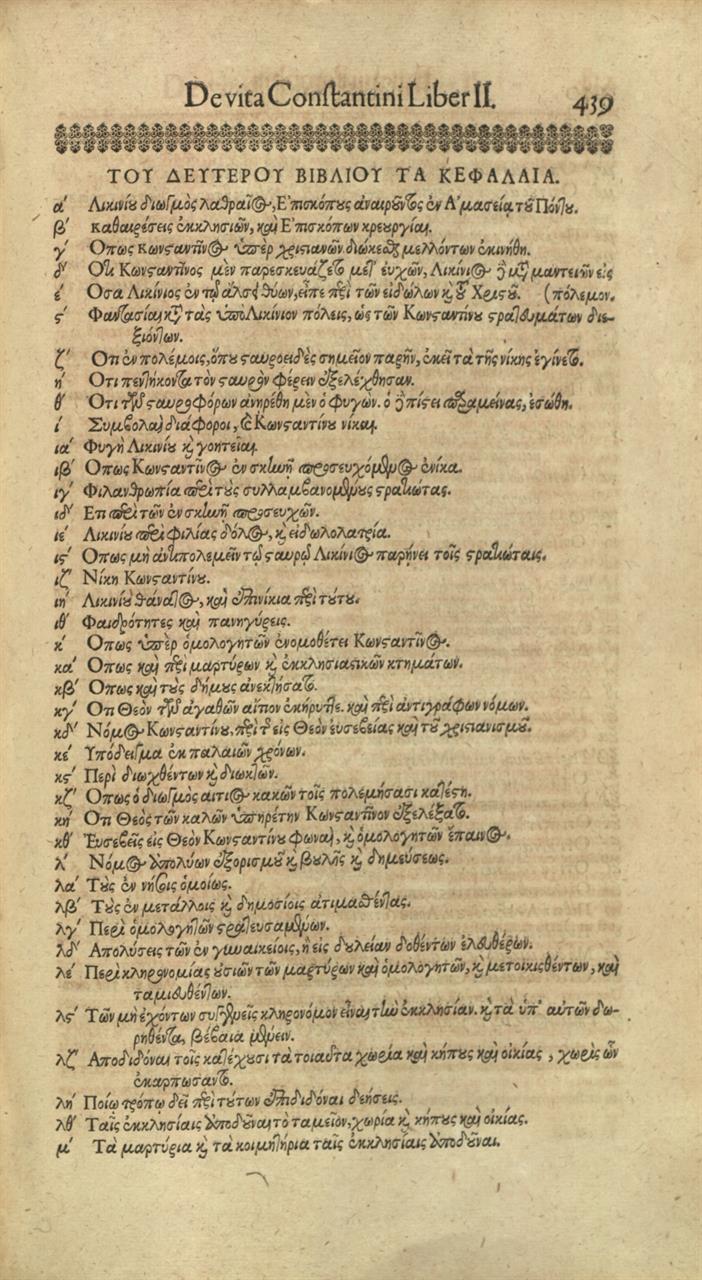 De vita Constantini Liber II. 439
ΤΟΥ ΔΕΥΤΕΡΟΥ ΒΙΒΛΙΟΥ ΤΑ ΚΕΦΑΛΑΙΑ.
α΄ Λικινίου διωγμὸς λαθραῖος, Ἐπισκόπους ἀναιροῦντος ἐν Ἀμασείᾳ τοῦ Πόντου.
β΄ καθαιρέσεις ἐκκλησιῶν, καὶ Ἐπισκόπων κρεουργίαι.
γ΄ Οπως Κωνσταντῖνος ὑπὲρ χριστιανῶν διώκεσθαι μελλόντων ἐκινήθη.
δ΄ Οτι Κωνσταντῖνος μὲν παρεσκευάζετο μετ᾽ εὐχῶν, Λικίνιος δὲ μετὰ μαντειῶν εἰς
ε΄ Οσα Λικίνιος ἐν τῷ ἄλσει θύων, εἶπε περὶ τῶν εἰδώλων καὶ τοῦ Χριστοῦ. (πόλεμον.
ς΄ Φαντασίαι κατὰ τὰς ὑπὸ Λικίνιον πόλεις, ὡς τῶν Κωνσταντίνου στρατευμάτων διε-
ξιόντων.
ζ΄ Οτι ἐν πολέμοις, ὅπου σταυροειδὲς σημεῖον παρῆν, ἐκεῖ τὰ τῆς νίκης ἐγίνετο.
η΄ Οτι πεντήκοντα τὸν σταυρὸν φέρειν ἐξελέχθησαν.
θ΄ Οτι τῶν σταυροφόρων ἀνηρέθη μὲν ὁ φυγών. ὁ δὲ πίστει παραμείνας, ἐσώθη.
ι΄ Συμβολαὶ διάφοροι, καὶ Κωνσταντίνου νίκαι.
ια΄ Φυγὴ Λικινίου καὶ γοητεῖαι.
ιβ΄ Οπως Κωνσταντῖνος ἐν σκηνῇ προσευχόμενος ἐνίκα.
ιγ΄ Φιλανθρωπία περὶ τοὺς συλλαμβανομένους στρατιώτας.
ιδ΄ Ετι περὶ τῶν ἐν σκηνῇ προσευχῶν.
ιε΄ Λικινίου περὶ φιλίας δόλος, καὶ εἰδωλολατρία.
ις΄ Οπως μὴ ἀντιπολεμεῖν τῷ σταυρῷ Λικίνιος παρῄνει τοῖς στρατιώταις.
ιζ΄ Νίκη Κωνσταντίνου.
ιη΄ Λικινίου θάνατος, καὶ ἐπινίκια περὶ τούτου.
ιθ΄ Φαιδρότητες καὶ πανηγύρεις.
κ΄ Οπως ὑπὲρ ὁμολογητῶν ἐνομοθέτει Κωνσταντῖνος.
κα΄ Οπως καὶ περὶ μαρτύρων καὶ ἐκκλησιαστικῶν κτημάτων.
κβ΄ Οπως καὶ τοὺς δήμους ἀνεκτήσατο.
κγ΄ Οτι Θεὸν τῶν ἀγαθῶν αἴτιον ἐκήρυττε. καὶ περὶ ἀντιγράφων νόμων.
κδ΄ Νόμος Κωνσταντίνου, περὶ τῆς εἰς Θεὸν εὐσεβείας καὶ τοῦ χριστιανισμοῦ.
κε΄ Υπόδειγμα ἐκ παλαιῶν χρόνων.
κς΄ Περὶ διωχθέντων καὶ διωκτῶν.
κζ΄ Οπως ὁ διωγμὸς αἴτιος κακῶν τοῖς πολεμήσασι κατέστη.
κη΄ Οτι Θεὸς τῶν καλῶν ὑπηρέτην Κωνσταντῖνον ἐξελέξατο.
κθ΄ Εὐσεβεῖς εἰς Θεὸν Κωνσταντίνου φωναὶ, καὶ ὁμολογητῶν ἔπαινος.
λ΄ Νόμος ἀπολύων ἐξορισμοῦ καὶ βουλῆς καὶ δημεύσεως.
λα΄ Τοὺς ἐν νήσοις ὁμοίως.
λβ΄ Τοὺς ἐν μετάλλοις καὶ δημοσίοις ἀτιμασθέντας.
λγ΄ Περὶ ὁμολογητῶν στρατευσαμένων.
λδ΄ Απολύσεις τῶν ἐν γυναικείοις, ἢ εἰς δουλείαν δοθέντων ἐλευθέρων.
λε΄ Περὶ κληρονομίας οὐσιῶν τῶν μαρτύρων καὶ ὁμολογητῶν, καὶ μετοικισθέντων, καὶ
ταμιευθέντων.
λς΄ Τῶν μὴ ἐχόντων συγγενεῖς κληρονόμον εἶναι τὴν ἐκκλησίαν. καὶ τὰ ὑπ᾽ αὐτῶν δω-
ρηθέντα, βέβαια μένειν.
λζ΄ Αποδιδόναι τοῖς κατέχουσι τὰ τοιαῦτα χωρία καὶ κήπους καὶ οἰκίας, χωρὶς ὧν
ἐκαρπώσαντο.
λη΄ Ποίῳ τρόπῳ δεῖ περὶ τούτων ἐπιδιδόναι δεήσεις.
λθ΄ Ταῖς ἐκκλησίαις ἀποδοῦναι τὸ ταμεῖον, χωρία καὶ κήπους καὶ οἰκίας.
μ΄ Τὰ μαρτύρια καὶ τὰ κοιμητήρια ταῖς ἐκκλησίαις ἀποδοῦναι.